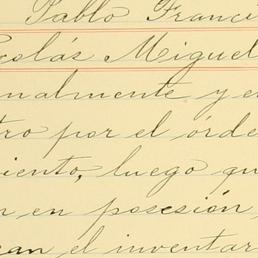 Pablo Franci
colás Miguel
nalmente y e
tro por el órde
iento, luego qu
n en posesión
can el inventar